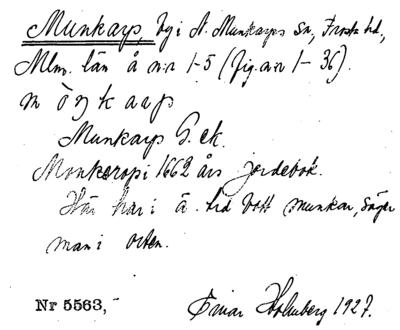 Munkarp, by i N. Munkarps sn, Frosta hd.,
Mlm. län å n:r 1-5 (fig. n:r 1-36).
Munkarp G. ek.
Monkerop i 1662 års jordebok.
Här har i ä. tid bott munkar, säger
man i orten.
Nr 5563,- Einar Holmberg 1927.